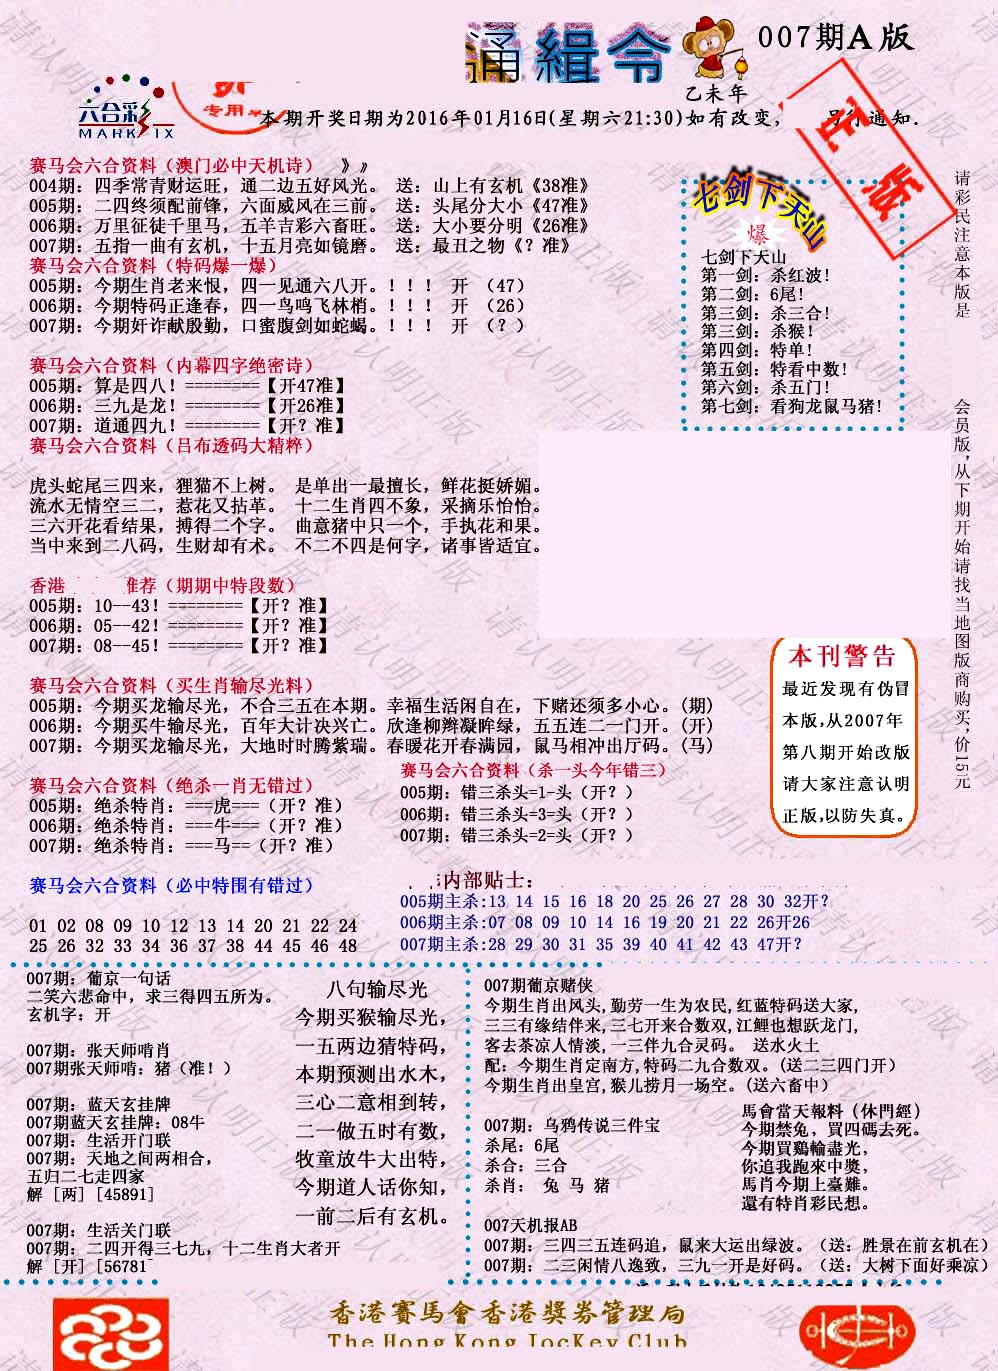 通緝令
007期A版
乙未年
六合彩
MARK SIX
专用
本期开奖日期为2016年01月16日(星期六21:30)如有改变,
通知.
赛马会六合资料（澳门必中天机诗） 》》
004期：四季常青财运旺，通二边五好风光。 送：山上有玄机《38准》
005期：二四终须配前锋，六面威风在三前。 送：头尾分大小《47准》
006期：万里征徒千里马，五羊吉彩六畜旺。 送：大小要分明《26准》
007期：五指一曲有玄机，十五月亮如镜磨。 送：最丑之物《？准》
赛马会六合资料（特码爆一爆）
005期：今期生肖老来恨，四一见通六八开。！！！ 开 （47）
006期：今期特码正逢春，四一鸟鸣飞林梢。！！！ 开 （26）
007期：今期奸诈献殷勤，口蜜腹剑如蛇蝎。！！！ 开 （？）
赛马会六合资料（内幕四字绝密诗）
005期：算是四八！========【开47准】
006期：三九是龙！========【开26准】
007期：道通四九！========【开？准】
赛马会六合资料（吕布透码大精粹）
虎头蛇尾三四来，狸猫不上树。 是单出一最擅长，鲜花挺娇媚。
流水无情空三二，惹花又拈革。 十二生肖四不象，采摘乐怡怡。
三六开花看结果，搏得二个字。 曲意猪中只一个，手执花和果。
当中来到二八码，生财却有术。 不二不四是何字，诸事皆适宜。
香港 推荐（期期中特段数）
005期：10--43！========【开？准】
006期：05--42！========【开？准】
007期：08--45！========【开？准】
赛马会六合资料（买生肖输尽光料）
005期：今期买龙输尽光，不合三五在本期。幸福生活闲自在，下赌还须多小心。(期)
006期：今期买牛输尽光，百年大计决兴亡。欣逢柳辫凝眸绿，五五连二一门开。(开)
007期：今期买龙输尽光，大地时时腾紫瑞。春暖花开春满园，鼠马相冲出厅码。(马)
赛马会六合资料（绝杀一肖无错过）
005期：绝杀特肖：===虎===（开？准）
006期：绝杀特肖：===牛===（开？准）
007期：绝杀特肖：===马==（开？准）
赛马会六合资料（杀一头今年错三）
005期：错三杀头=1-头（开？）
006期：错三杀头=3=头（开？）
007期：错三杀头=2=头（开？）
赛马会六合资料（必中特围有错过）
01 02 08 09 10 12 13 14 20 21 22 24
25 26 32 33 34 36 37 38 44 45 46 48
内部贴士：
005期主杀:13 14 15 16 18 20 25 26 27 28 30 32开？
006期主杀:07 08 09 10 14 16 19 20 21 22 26开26
007期主杀:28 29 30 31 35 39 40 41 42 43 47开？
七剑下天山
爆
七剑下天山
第一剑：杀红波！
第二剑：6尾！
第三剑：杀三合！
第三剑：杀猴！
第四剑：特单！
第五剑：特看中数！
第六剑：杀五门！
第七剑：看狗龙鼠马猪！
请彩民注意本版是
会员版,从下期开始请找当地图版商购买,价15元
本刊警告
最近发现有伪冒
本版,从2007年
第八期开始改版
请大家注意认明
正版,以防失真。
007期：葡京一句话
二笑六悲命中，求三得四五所为。
玄机字：开
007期：张天师啃肖
007期张天师啃：猪（准！）
007期：蓝天玄挂牌
007期蓝天玄挂牌：08牛
007期：生活开门联
007期：天地之间两相合，
五归二七走四家
解 [两] [45891]
007期：生活关门联
007期：二四开得三七九，十二生肖大者开
解 [开] [56781
八句输尽光
今期买猴输尽光，
一五两边猜特码，
本期预测出水木，
三心二意相到转，
二一做五时有数，
牧童放牛大出特，
今期道人话你知，
一前二后有玄机。
007期葡京赌侠
今期生肖出风头,勤劳一生为农民,红蓝特码送大家,
三三有缘结伴来,三七开来合数双,江鲤也想跃龙门,
客去茶凉人情淡,一三伴九合灵码。 送水火土
配：今期生肖定南方,特码二九合数双。(送二三四门开）
今期生肖出皇宫,猴儿捞月一场空。(送六畜中）
007期：乌鸦传说三件宝
杀尾：6尾
杀合：三合
杀肖： 兔 马 猪
馬會當天報料（休門經）
今期禁兔，買四碼去死。
今期買鷄輸盡光，
你追我跑來中獎，
馬肖今期上臺難。
還有特肖彩民想。
007天机报AB
007期：三四三五连码追，鼠来大运出绿波。（送：胜景在前玄机在）
007期：二三闲情八逸致，三九一开是好码。（送：大树下面好乘凉）
香港賽馬會香港獎券管理局
The Hong Kong Jockey Club